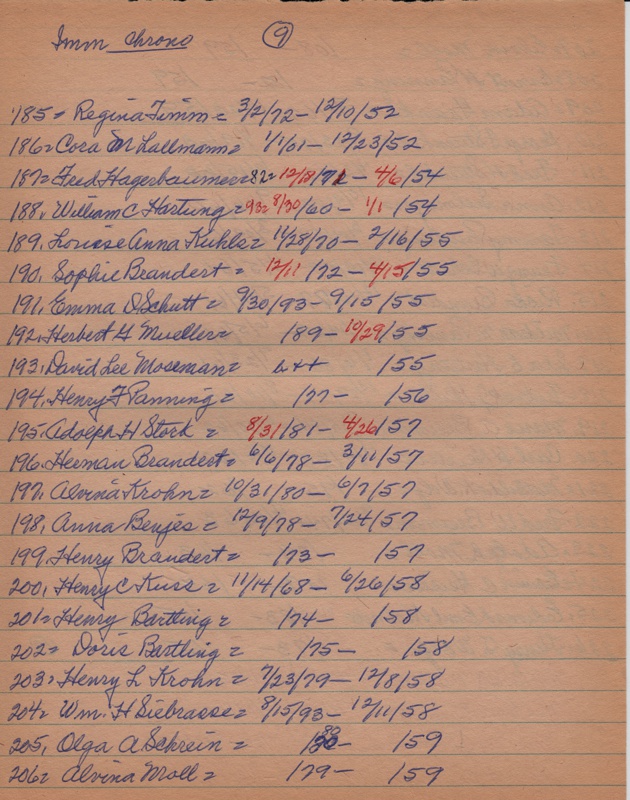 Imm Chrono 9
185= Regina Timm= 3/2/72- 12/10/52
186= Cora M Lallmann= 1/1/01- 12/23/52
187= Fred Hagerbaumer= 82= 12/18/71- 4/6/54
188, William C Hartung= 93= 8/30/60- 1/1/54
189, Louise Anna Kuhls= 11/28/70- 2/16/55
190, Sophie Brandert= 12/11/72- 4/15/55
191, Emma D Schutt= 9/30/93- 9/15/55
192, Herbert H Mueller= 189- 10/29/55
193, David Lee Moseman= b++ /55
194, Henry F Panning= /77- /56
195, Adolph H Stork= 8/31/81- 4/26/57
196, Herman Brandert= 6/6/78- 3/11/57
197, Alvina Krohn= 10/31/80- 6/7/57
198, Anna Benjes= 12/9/78- 7/24/57
199, Henry Brandert= /73- /57
200, Henry C Kuss= 11/14/68- 6/26/58
201= Henry Bartling= /74- /58
202= Doris Bartling= /75- /58
203= Henry L Krohn= 7/23/79- 12/8/58
204= Wm. H Siebrasse= 8/15/93- 12/11/58
205, Olga A Schrein= /80- /59
206= Alvina Moll= /79- /59